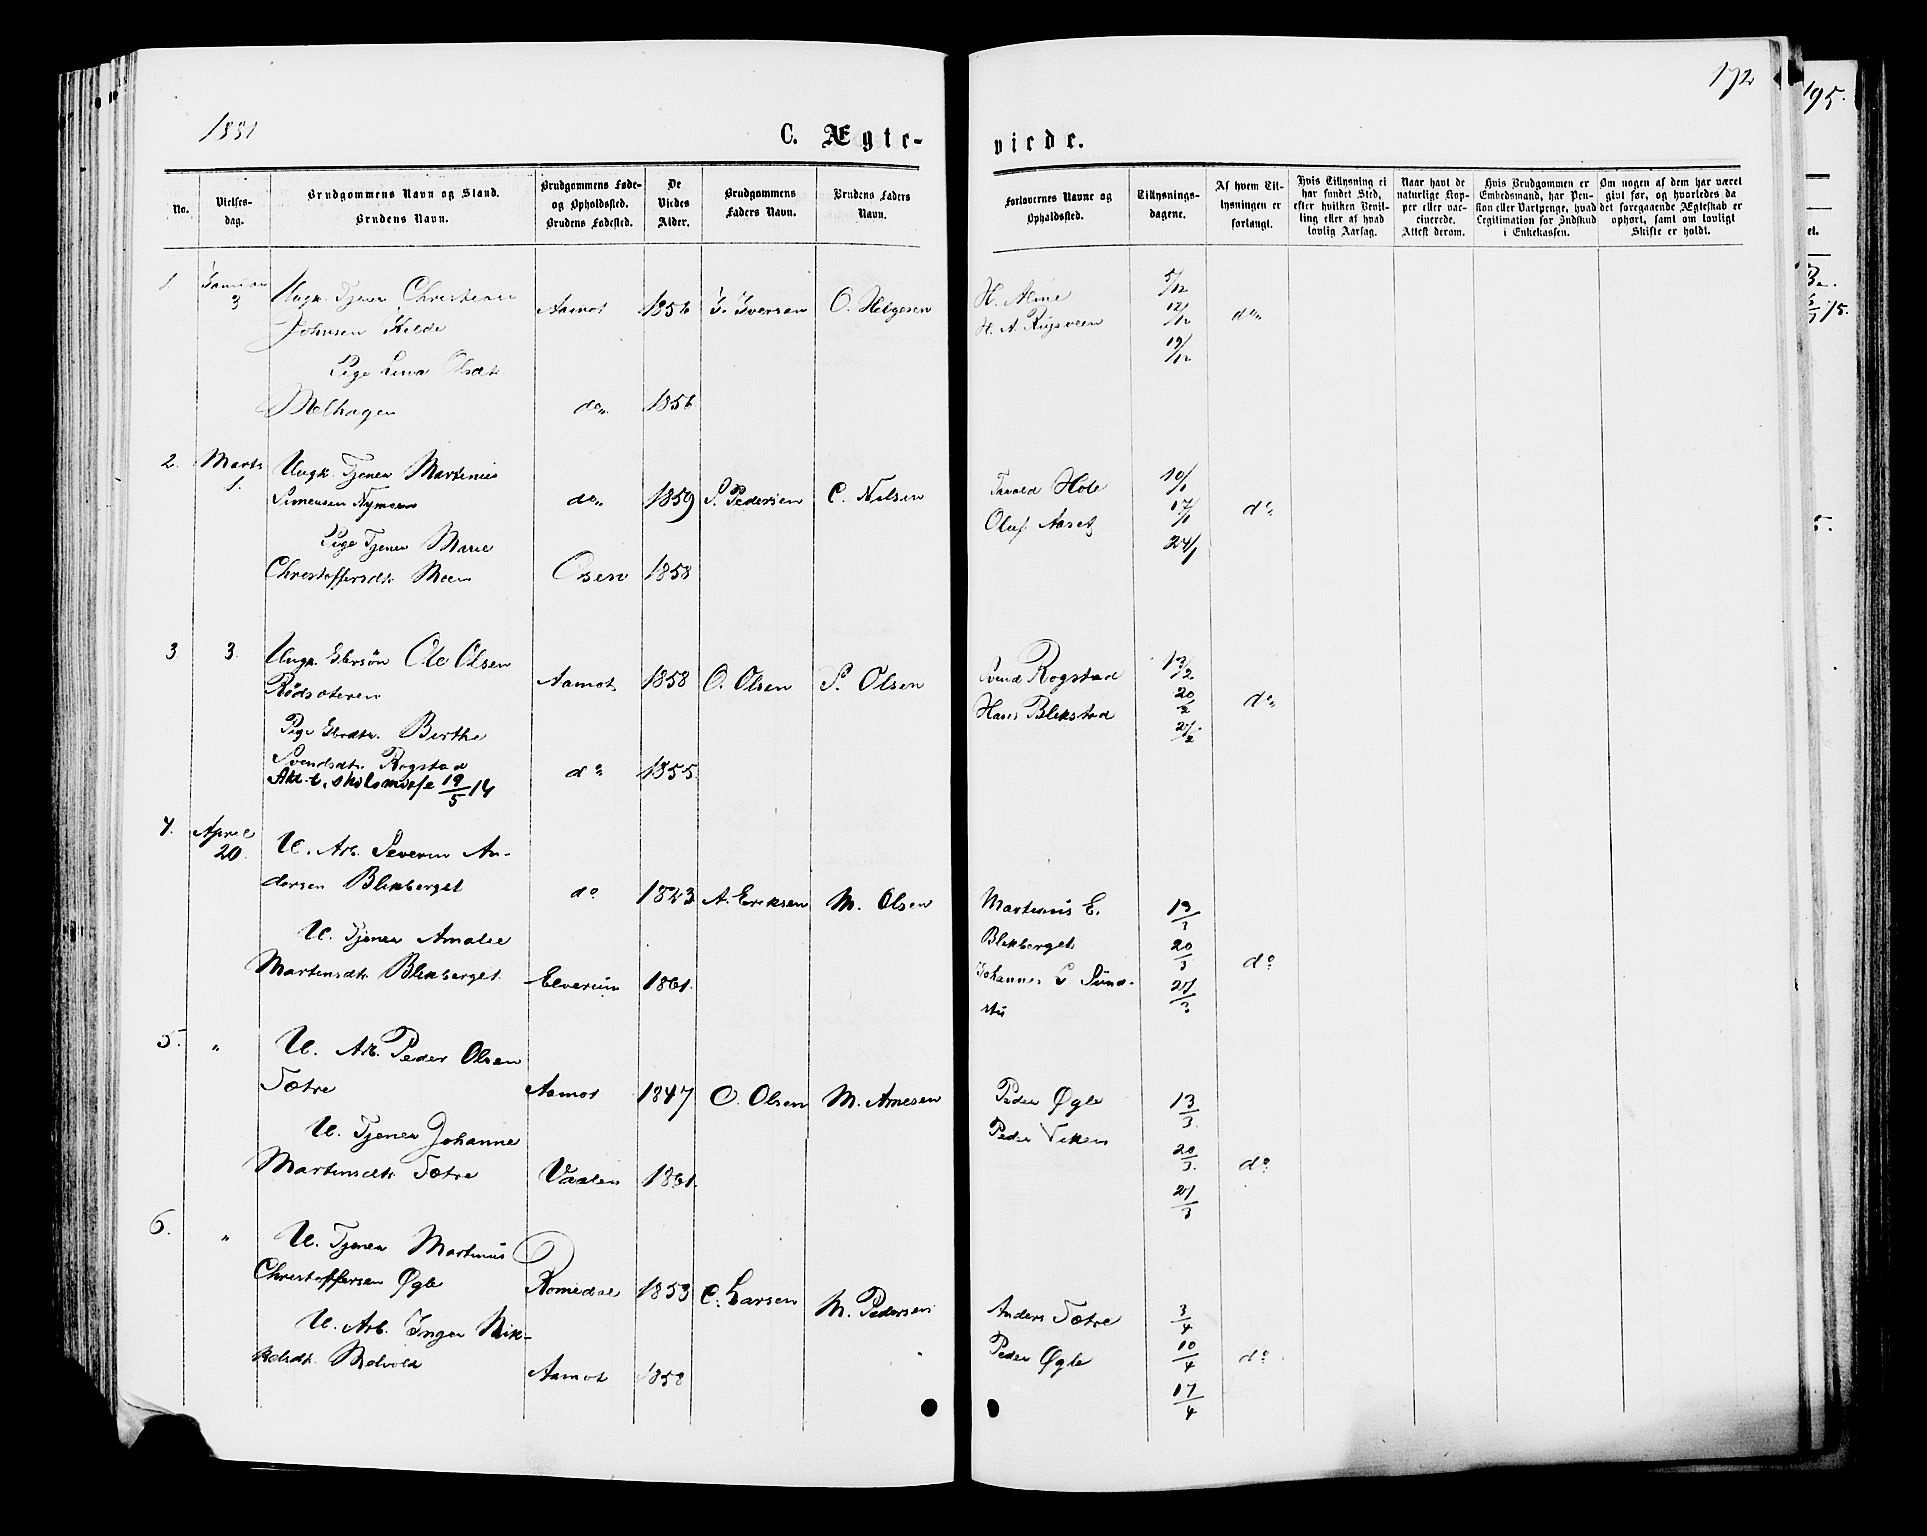 1881
172
195.
C. Ægte-
viede.
No.
Vielses-
dag.
Brudgommens Navn og Stand.
Brudens Navn.
Brudgommens Føde-
og Opholdssted.
Brudens Fødested.
De
Viedes
Alder.
Brudgommens
Faders Navn.
Brudens Faders
Navn.
Forlovernes Navne og
Opholdssted.
Tillysnings-
dagene.
Af hvem Til-
lysningen er
forlangt.
Hvis Tillysning ei
har fundet Sted,
efter hvilken Bevil-
ling eller af hvad
lovlig Aarsag.
Naar havt de
naturlige Kop-
per eller vac-
cinerede.
Attest derom.
Hvis Brudgommen er
Embedsmand, har Pen-
sion eller Vartpenge, hvad
Legitimation for Indskud
i Enkekassen.
Om nogen af dem har været
givt før, og hvorledes da
det foregaaende Ægteskab er
ophørt, samt om lovligt
Skifte er holdt.
1
Januar
3
Ungk. Tjener Christian
Johnsen Kilde
Aamot 1856 J. Iversen O. Helgesen
H. Alme
H. A. Rugsveen
5/12
12/12
19/12
do
Pige Lina Olsdtr
Melhagen
do 1856
2. Marts
1.
Ungk. Tjener Martinus
Simensen Nymoen
do 1859 S. Pedersen C. Nilsen
Hole
Oluf Aaset
10/1
17/1
24/1
do
Pige Tjener Marie
Christoffersdtr Moen
Osen 1858
3 3.
Ungk. Gbrsøn Ole Olsen
Rødsæteren
Aamot 1858 O. Olsen S. Olsen
Svend Rogstad
Hans Blekstad
13/2
20/2
27/2
do
Pige Gbrdtr. Berthe
Svendsdtr. Rogstad
do 1855
Akt. t. skilsmisse 19/5 14
4. April
20.
U. Arb. Severin An-
dersen Blikberget
do 1823 A. Eriksen M. Olsen
Martinus E.
Blikberget
Johannes
13/3
20/3
27/3
do
U. Tjener Amalie
Martinsdtr Blikberget
Elverum 1861.
5. "
U. Arb. Peder Olsen
Sætre
Aamot 1847 O. Olsen M. Arnesen
Peder Øgle
Peder Viken
13/3
20/3
27/3
do
U. Tjener Johanne
Martinsdtr Sætre
Vaaler 1861.
6. "
U. Tjener Martinus
Christoffersen Øgle
Romedal 1853 C. Larsen M. Pedersen
Anders Sætre
Peder Øgle
3/4
10/4
17/4
do
U. Arb. Inger Mik-
kelsdtr. Melvold
Aamot 1858